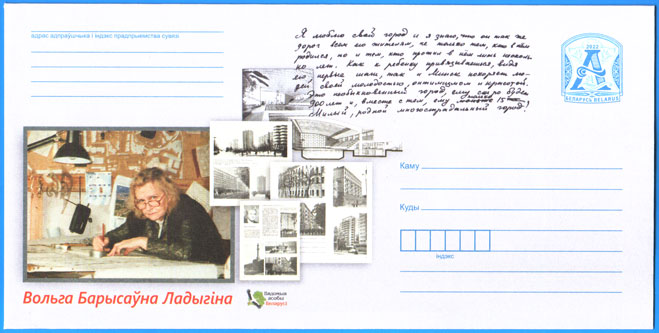 адрас адпраўшчыка і індэкс прадпрыемства сувязі
Я люблю свой город и я знаю, что он так же
дорог всем его жителям, не только тем, кто в нём
родился, но и тем, кто прожил в нём
но лет. Как к ребёнку привязываешься, видя
его первые шаги, так и Минск покоряет лю-
дей своей молодостью, оптимизмом и
Это необыкновенный город, ему скоро будет
900 лет и, вместе с тем, ему только 15
Милый, родной многострадальный город!
2012
А
БЕЛАРУСЬ BELARUS
Каму
Куды
індэкс
Вольга Барысаўна Ладыгіна
Вядомыя
асобы
Беларусі